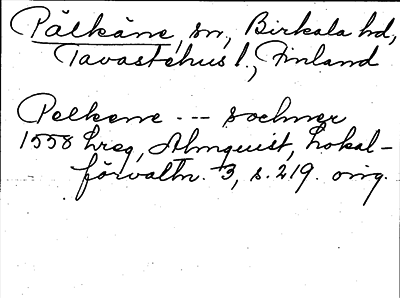 Pälkäne, sn, Birkala hd,
Tavastehus l., Finland
Pelkene --- sochner
1558 hreg, Almquist, Lokal-
förvaltn. 3, s. 219. orig.